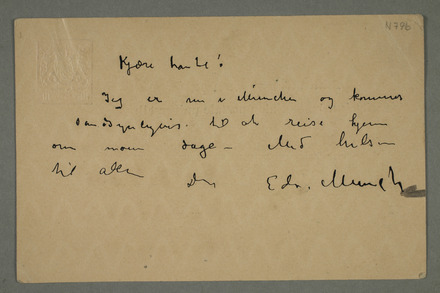 N 796
Kjære tante!
Jeg er nu i München og kommer
sandsynligvis til at reise hjem
om noen dage – Med hilsen
til alle Din Edv. Munch